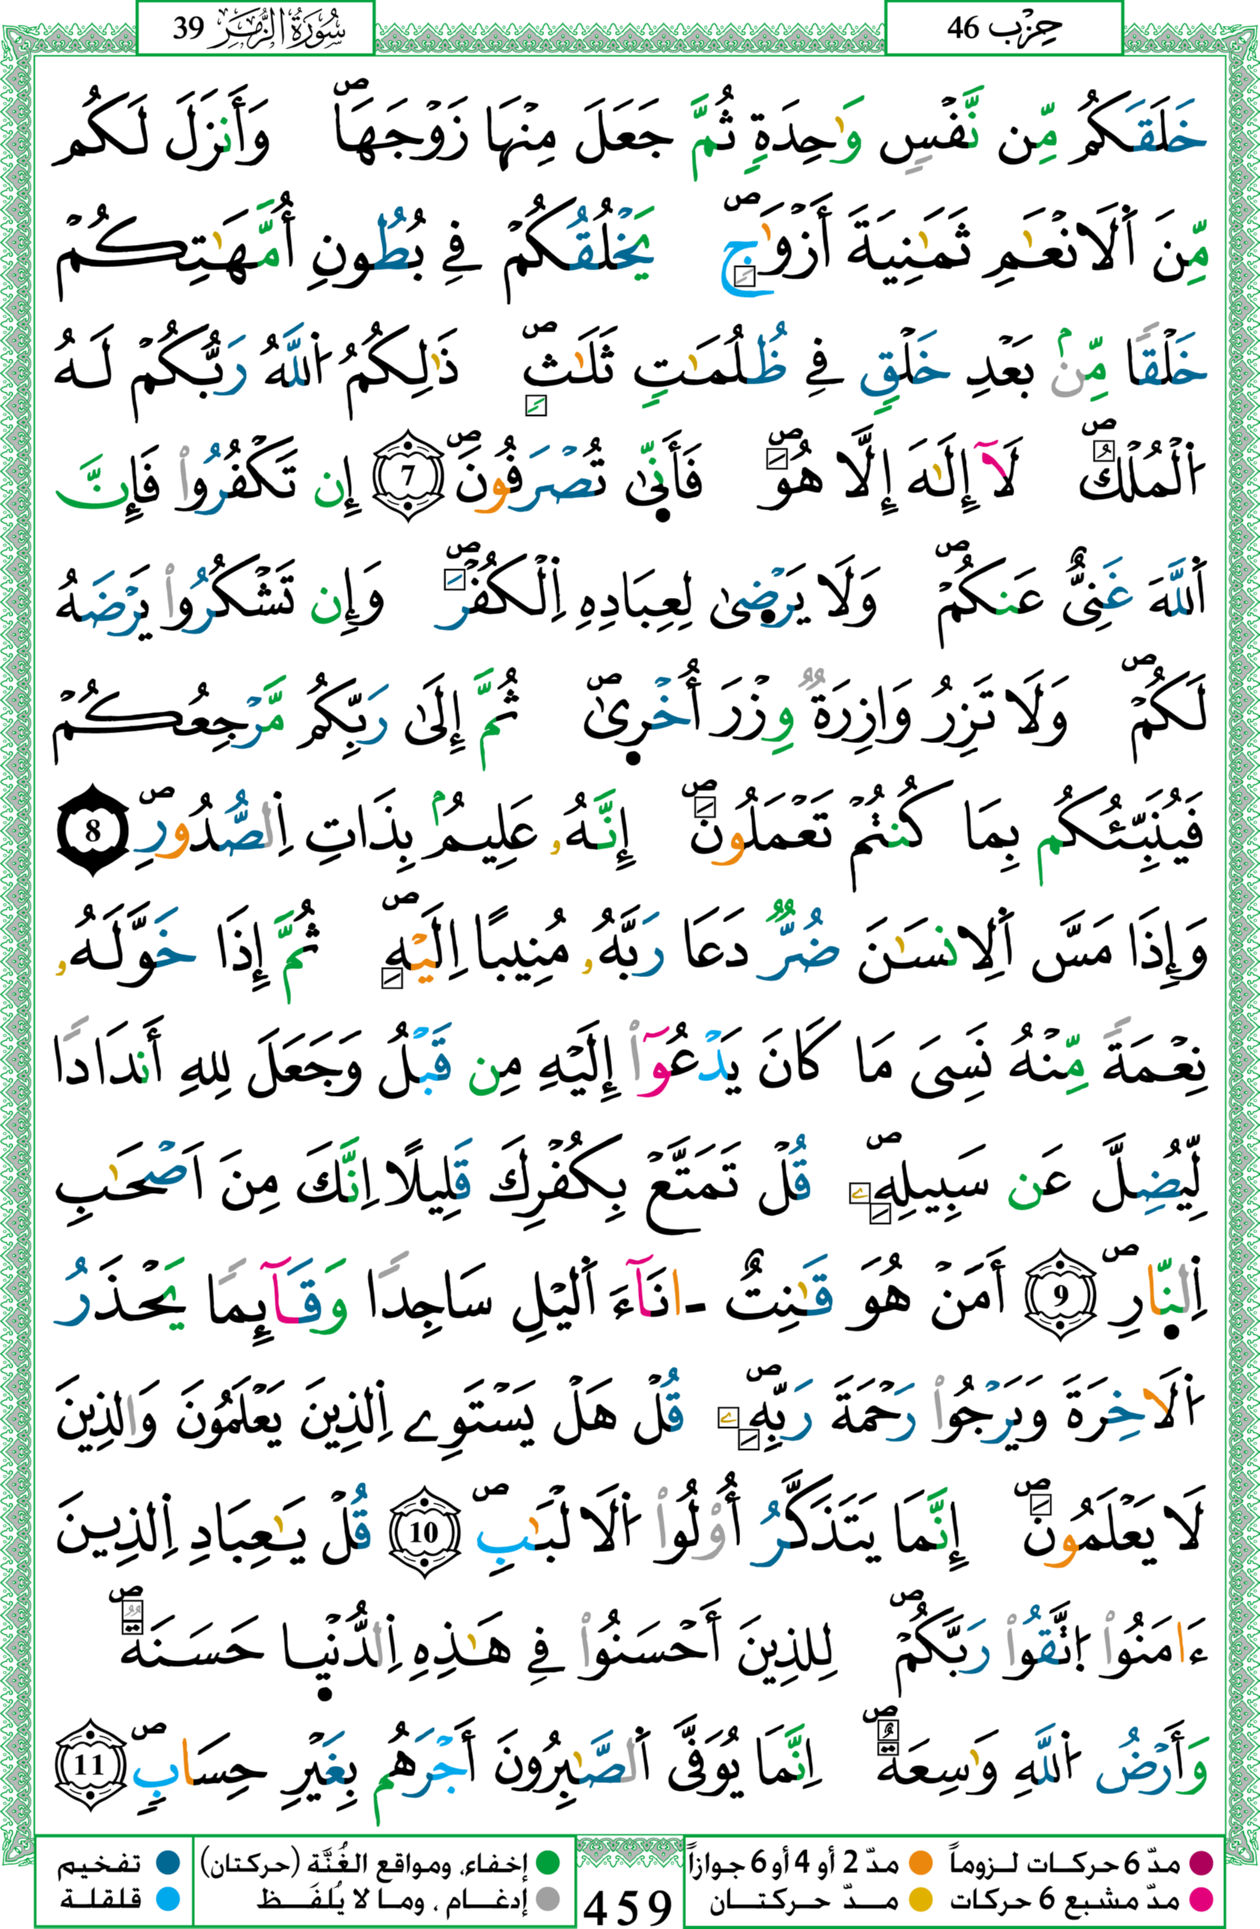 سُورَةُ الزُّمَرِ 39
حِزْب 46
خَلَقَكُم مِّن نَّفْسٖ وَٰحِدَةٖ ثُمَّ جَعَلَ مِنْهَا زَوْجَهَاۖ وَأَنزَلَ لَكُم
مِّنَ اَ۬لَانْعَٰمِ ثَمَٰنِيَةَ أَزْوَٰجٖۖ يَخْلُقُكُمْ فِے بُطُونِ أُمَّهَٰتِكُمْ
خَلْقاٗ مِّنۢ بَعْدِ خَلْقٖ فِے ظُلُمَٰتٖ ثَلَٰثٖۖ ذَٰلِكُمُ اُ۬للَّهُ رَبُّكُمْ لَهُ
اُ۬لْمُلْكُۖ لَآ إِلَٰهَ إِلَّا هُوَۖ فَأَنّ۪ىٰ تُصْرَفُونَۖ 7 إِن تَكْفُرُواْ فَإِنَّ
اَ۬للَّهَ غَنِىٌّ عَنكُمْۖ وَلَا يَرْض۪ىٰ لِعِبَادِهِ اِ۬لْكُفْرَۖ وَإِن تَشْكُرُواْ يَرْضَهُ
لَكُمْۖ وَلَا تَزِرُ وَازِرَةٞ وِزْرَ أُخْر۪ىٰۖ ثُمَّ إِلَىٰ رَبِّكُم مَّرْجِعُكُمْ
فَيُنَبِّئُكُم بِمَا كُنتُمْ تَعْمَلُونَۖ إِنَّهُۥ عَلِيمُۢ بِذَاتِ اِ۬لصُّدُورِۖ 8
وَإِذَا مَسَّ اَ۬لِانسَٰنَ ضُرّٞ دَعَا رَبَّهُۥ مُنِيباً اِلَيْهِۖ ثُمَّ إِذَا خَوَّلَهُۥ
نِعْمَةٗ مِّنْهُ نَسِىَ مَا كَانَ يَدْعُوٓاْ إِلَيْهِ مِن قَبْلُ وَجَعَلَ لِلهِ أَندَاداٗ
لِّيُضِلَّ عَن سَبِيلِهِۦۖ قُلْ تَمَتَّعْ بِكُفْرِكَ قَلِيلاً اِنَّكَ مِنَ اَصْحَٰبِ
اِ۬لنّ۪ارِۖ 9 أَمَنْ هُوَ قَٰنِتٌ ـ انَآءَ اَ۬ليْلِ سَاجِداٗ وَقَآئِماٗ يَحْذَرُ
اُ۬لَاخِرَةَ وَيَرْجُواْ رَحْمَةَ رَبِّهِۦۖ قُلْ هَلْ يَسْتَوِے اِ۬لذِينَ يَعْلَمُونَ وَالذِينَ
لَا يَعْلَمُونَۖ إِنَّمَا يَتَذَكَّرُ أُوْلُواْ اُ۬لَالْبَٰبِۖ 10 قُلْ يَٰعِبَادِ اِ۬لذِينَ
ءَامَنُواْ اُ۪تَّقُواْ رَبَّكُمْۖ لِلذِينَ أَحْسَنُواْ فِے هَٰذِهِ اِ۬لدُّنْي۪ا حَسَنَةٞۖ
وَأَرْضُ اُ۬للَّهِ وَٰسِعَةٌۖ اِنَّمَا يُوَفَّى اَ۬لصَّٰبِرُونَ أَجْرَهُم بِغَيْرِ حِسَابٖۖ 11
مدّ 6 حركات لـزوماً
مدّ 2 أو 4 أو 6 جوازاً
إخفاء، ومواقع الغُنَّة (حركتان)
تفخيم
مدّ مشبع 6 حركات
مــدّ حـركتــان
إدغــام ، ومـا لا يُلفَــظ
قلقلة
459